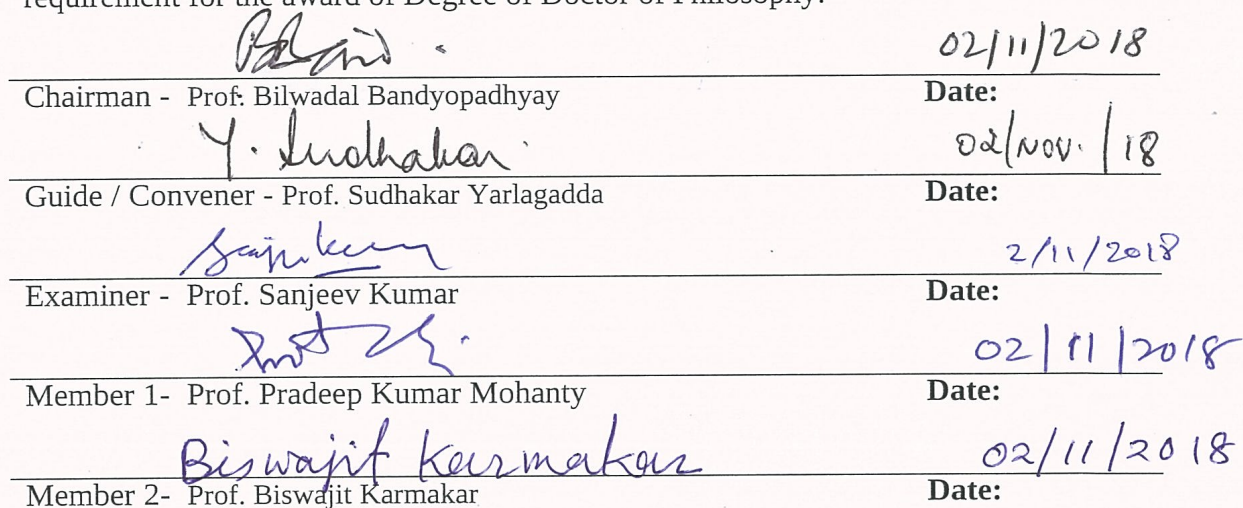 requirement for the award of Degree of Doctor of Philosophy.
02/11/2018
Chairman - Prof. Bilwadal Bandyopadhyay Date:
Y. Sudhakar 02/NOV. /18
Guide / Convener - Prof. Sudhakar Yarlagadda Date:
2/11/2018
Examiner - Prof. Sanjeev Kumar Date:
02/11/2018
Member 1- Prof. Pradeep Kumar Mohanty Date:
Biswajit Karmakar 02/11/2018
Member 2- Prof. Biswajit Karmakar Date: